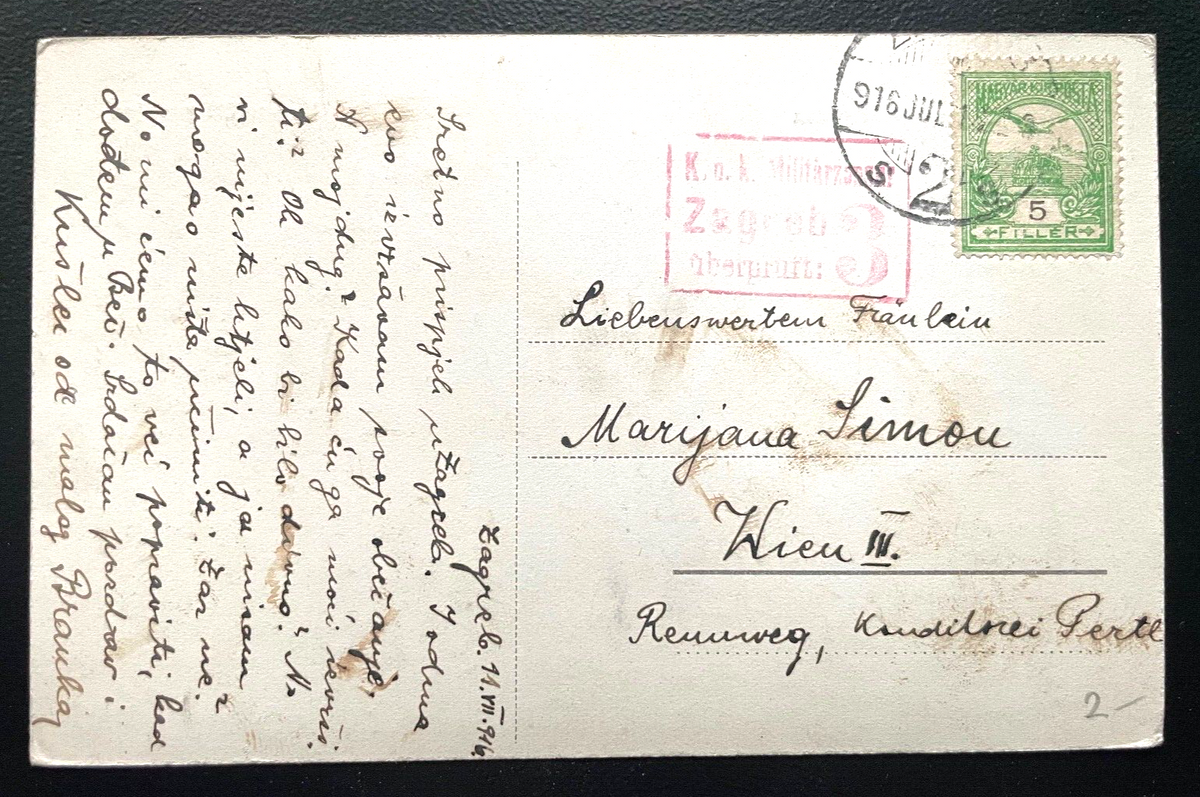 Zagreb. 11.VII.916.
Sretno prispjeh u Zagreb. I odma
evo izvršavam svoje obećanje.
A moj dug? Kada ću ga moći izvrši-
ti? Oh kako bi bilo divno? No
vi nijeste htjeli, a ja nisam
mogao ništa učiniti. Žar ne?
No mi ćemo to već popraviti, kad
dođem u Beč. Srdačan pozdrav i
Kušlec od malog Brankaj
K. u. k. Militärzensur
Zagreb 3
überprüft:
916 JUL
2
MAGYAR KIR. POSTA
5
FILLÉR
Liebenswertem Fräulein
Marijana Simon
Wien III.
Rennweg, Konditorei Pertl
2-